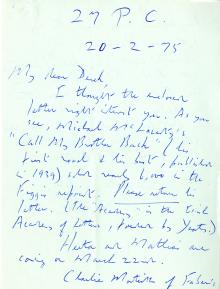 27 P. C.
20-2-75
My dear Derek
I thought the enclosed
letter might interest you. As you
see, Michael McLaverty's
"Call My Brother Back" (his
first novel & his best, published
in 1939) sold nearly 6,000 in the
Figgis reprint. Please return his
letter. (The "Academy" is the Irish
Academy of Letters, founded by Yeats.)
Herta and Matthias are
coming on March 22nd.
Charlie of Faber's